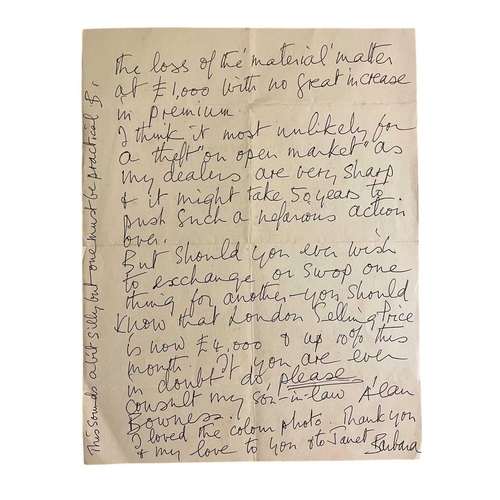 The loss of the 'material' matter
at £1,000 with no great increase
in premium.
I think it most unlikely for
a theft "on open market" as
my dealers are very sharp
& it might take 50 years to
push such a nefarious action
over.
But should you ever wish
to exchange or swop one
thing for another – you should
know that London Selling Price
is now £4,000 & up 10% this
month. If you are ever
in doubt do please
consult my son-in-law Alan
Bowness.
I loved the colour photo. Thank you
& my love to you & to Janet Barbara
This sounds a bit silly but one must be practical B.